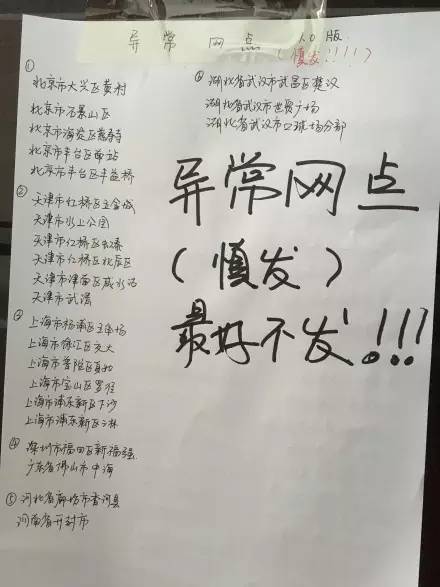 异常网点 1.0版
(慎发!!!!)
①
北京市大兴区黄村
北京市石景山区
北京市海淀区慈寿寺
北京市丰台区西站
北京市丰台区丰益桥
②
天津市红桥区
天津市水上公园
天津市红桥区
天津市红桥区北辰区
天津市津南区咸水沽
天津市武清
③
上海市杨浦区五角场
上海市徐江区交大
上海市普陀区真如
上海市宝山区罗泾
上海市浦东新区下沙
上海市浦东新区三林
④
深圳市福田区新福强
广东省佛山市中海
⑤河北省廊坊市香河县
河南省开封市
⑥湖北省武汉市武昌区楚汉
湖北省武汉市世贸广场
湖北省武汉市 球场分部
异常网点
(慎发)
最好不发!!!